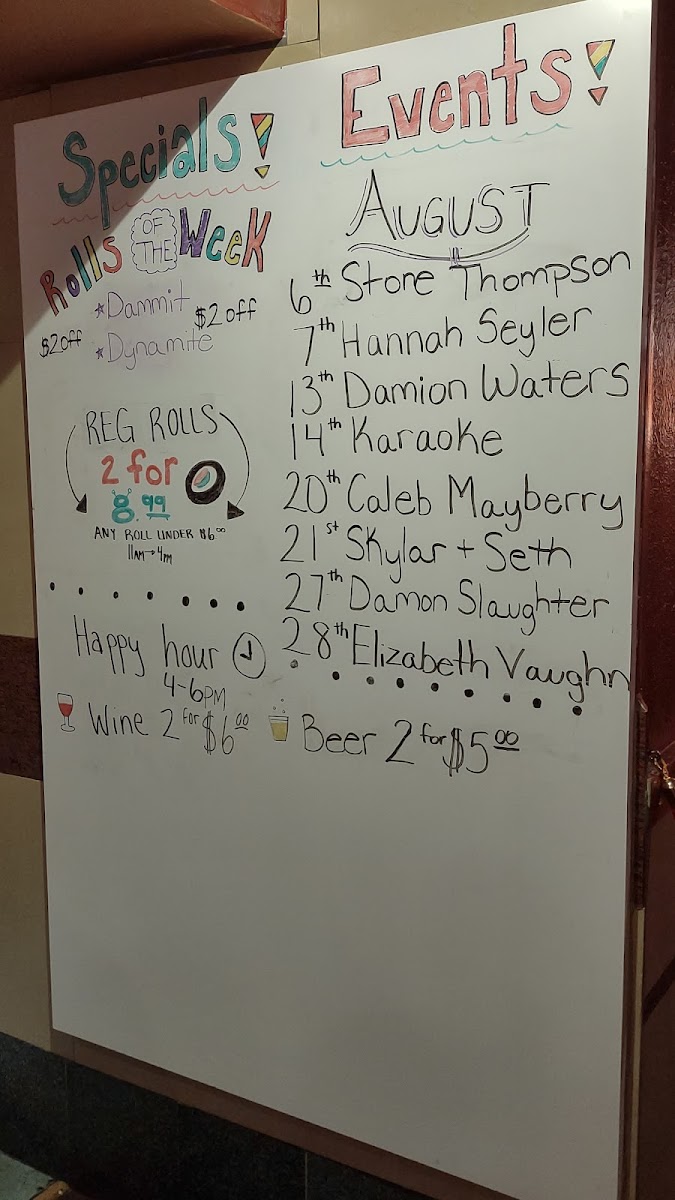 Specials!
Rolls OF THE Week
*Dammit $2 off
$2 off *Dynamite
REG ROLLS
2 for
8.99
ANY ROLL UNDER $6.00
11AM→4PM
Happy hour
4-6PM
Wine 2 for $6.00
Events!
AUGUST
6th Store Thompson
7th Hannah Seyler
13th Damion Waters
14th Karaoke
20th Caleb Mayberry
21st Skylar + Seth
27th Damon Slaughter
28th Elizabeth Vaughn
Beer 2 for $5.00